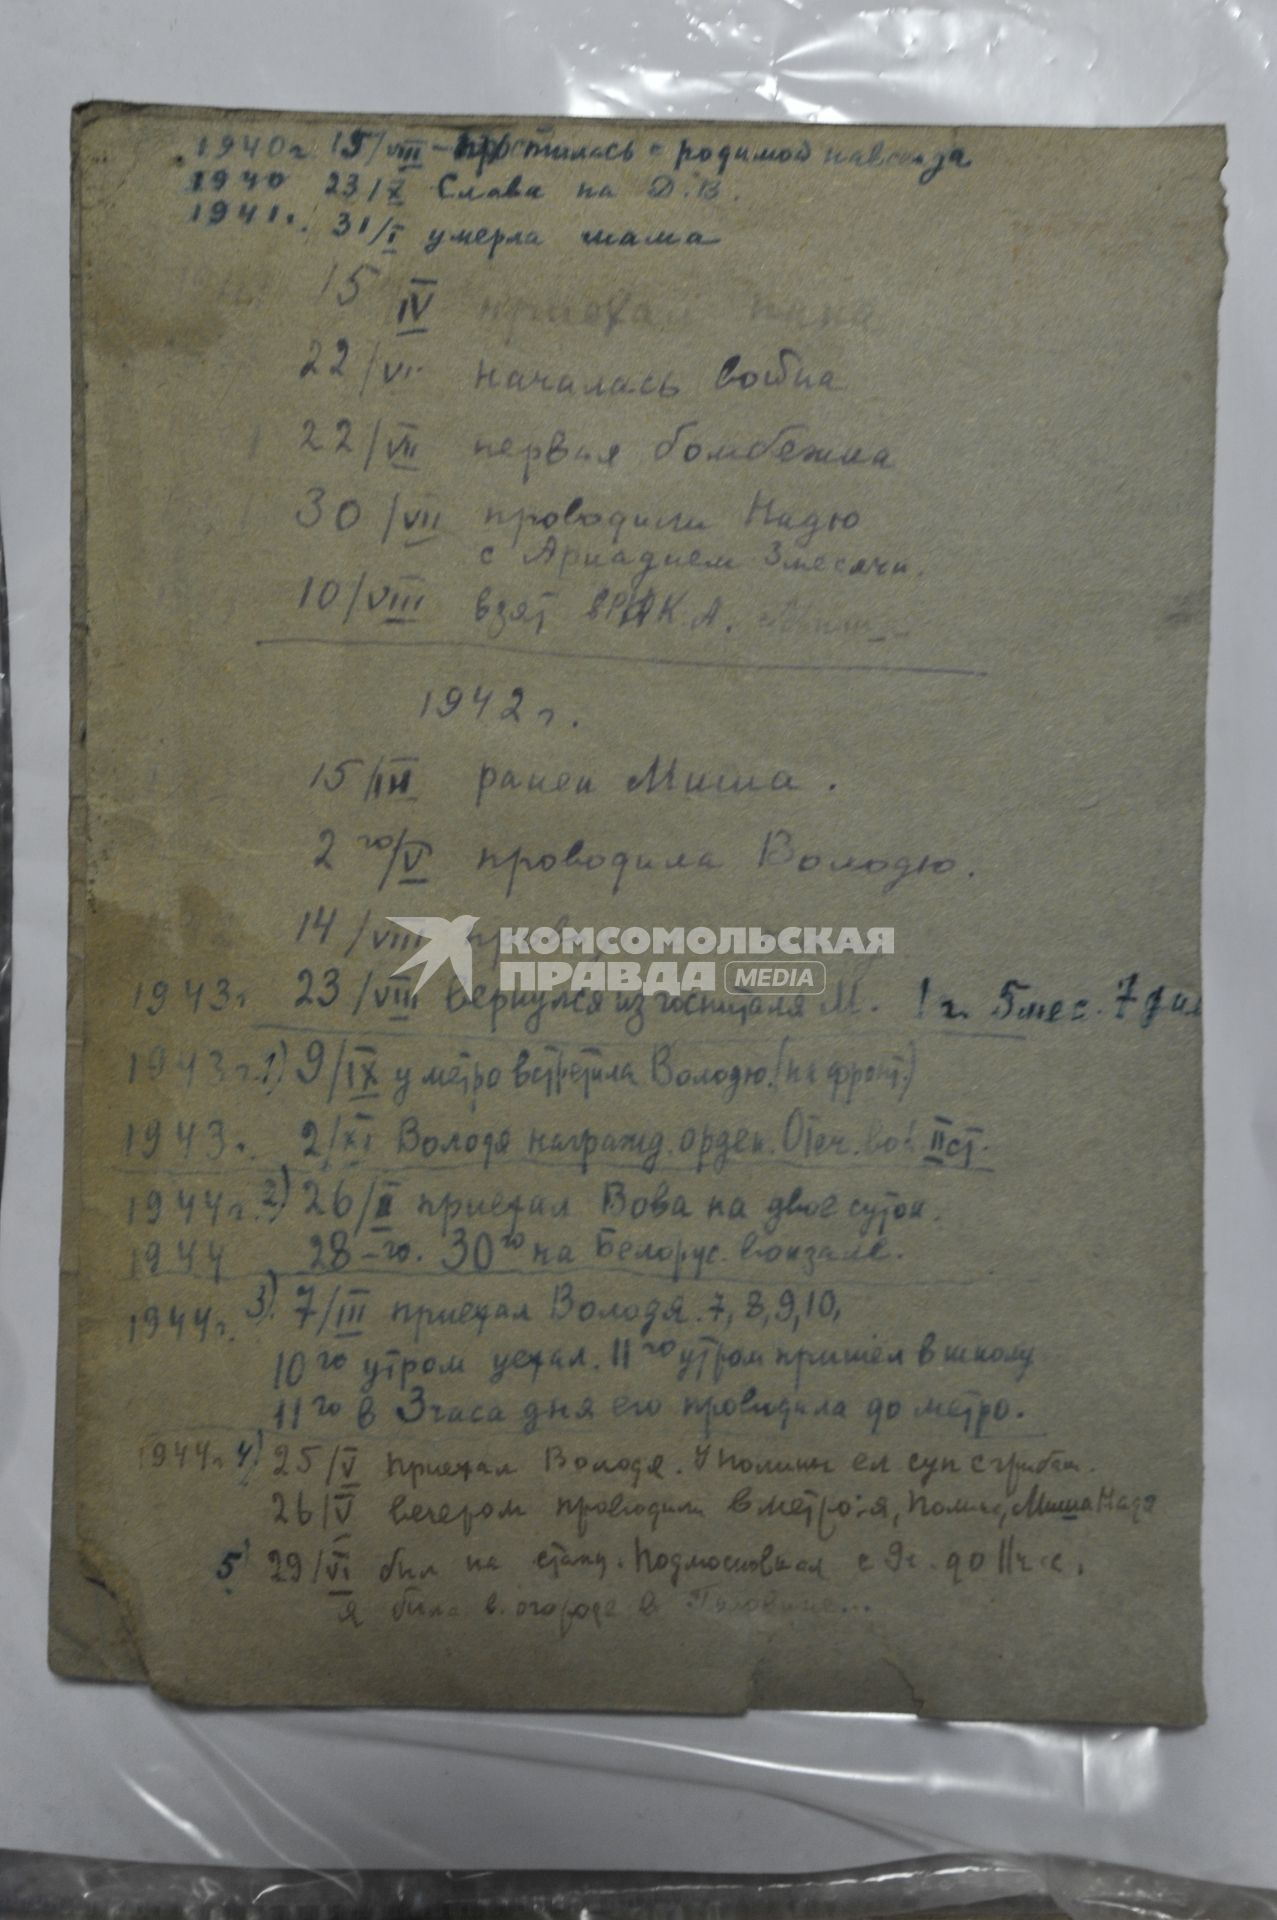 1940г. 15/VIII – простилась с родимой навсегда
1940 23/X Слава на Д.В.
1941г. 31/I умерла мама
15 IV приехал папа
22/VI началась война
22/VII первая бомбежка
30/VII проводили Надю
с Аркадием 3 месяцы.
10/VIII взят в РККА. Миша
1942г.
15/III ранен Миша.
2го/V проводила Володю.
14/VIII
КОМСОМОЛЬСКАЯ
ПРАВДА MEDIA
1943г 23/VIII вернулся из госпиталя М. 1 г. 5 мес. 7 дня
1943г. 1) 9/IX у метро встретила Володю. (на фронт.)
1943г. 2/XI Володя награжд. орден. Отеч. во! II ст.
1944г. 2) 26/II приехал Вова на двое суток.
1944 28–го. 30го на Белорус. вокзале.
1944г. 3) 7/III приехал Володя. 7, 8, 9, 10,
10го утром уехал. 11го утром пришел в школу
11го в 3 часа дня его проводила до метро.
1944г 4) 25/V приехал Володя. У Полины ел суп с грибам.
26/V вечером проводили в метро: я, Полина, Миша Надя
5) 29/VI был на станц. Подмосковная с 9ч. до 11 час.
я была в огороде в